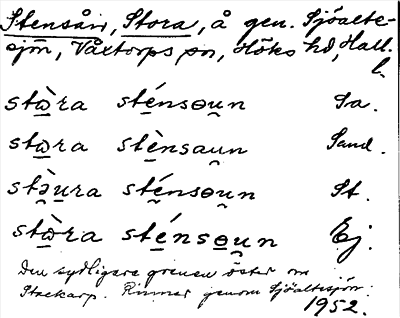 Stensån, Stora, å gen. Sjöalte-
sjön, Våxtorps sn, Höks hd, Hall.
l.
stὼ̱ra sté̱nsɵu̯n Sa.
stὼ̱ra stè̱nsau̯n Sand.
stə̯̀u̱ra sté̱nsɵu̯n St.
stὼ̱ra sté̱nsɵ̱u̯n Ej.
Den sydligare grenen öster om
Stackarp. Rinner genom Sjöaltesjön.
1952.